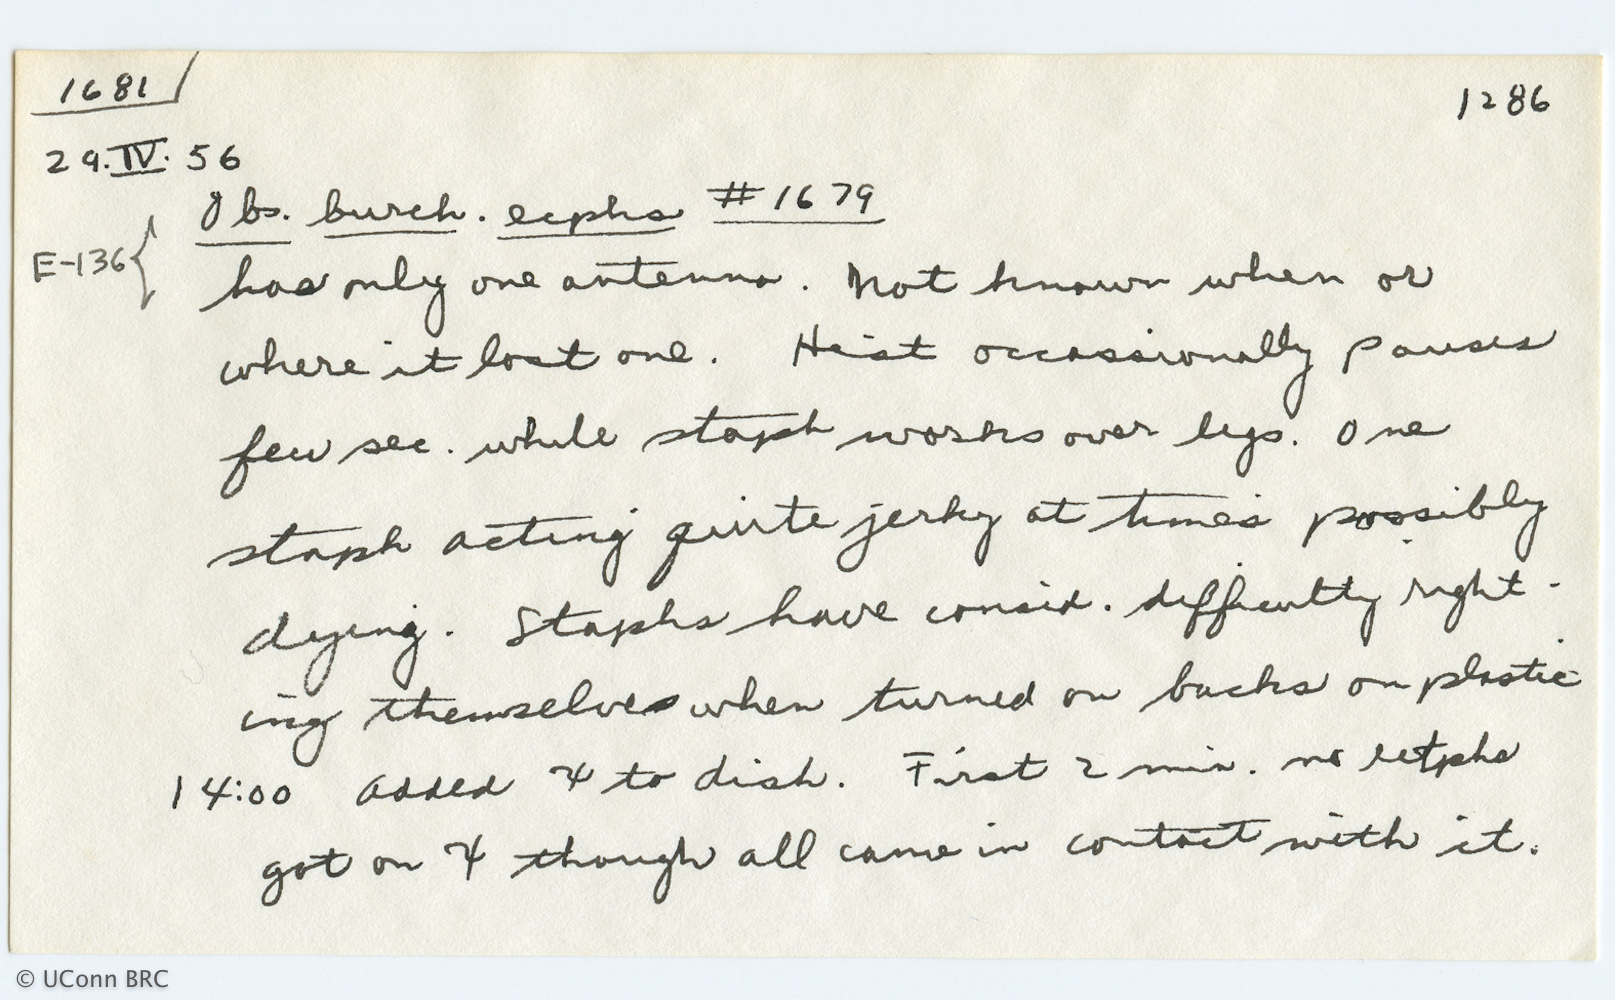 1681
1286
29.IV.56
Obs. burch. ecphs #1679
E-136 {
has only one antenna. Not known when or
where it lost one. Hist occassionally pauses
few sec. while staph works over legs. One
staph acting quite jerky at times possibly
dying. Staphs have consid. difficulty right-
ing themselves when turned on backs on plastic
14:00 Added ♃ to dish. First 2 min. no
got on ♃ though all came in contact with it.
© UConn BRC